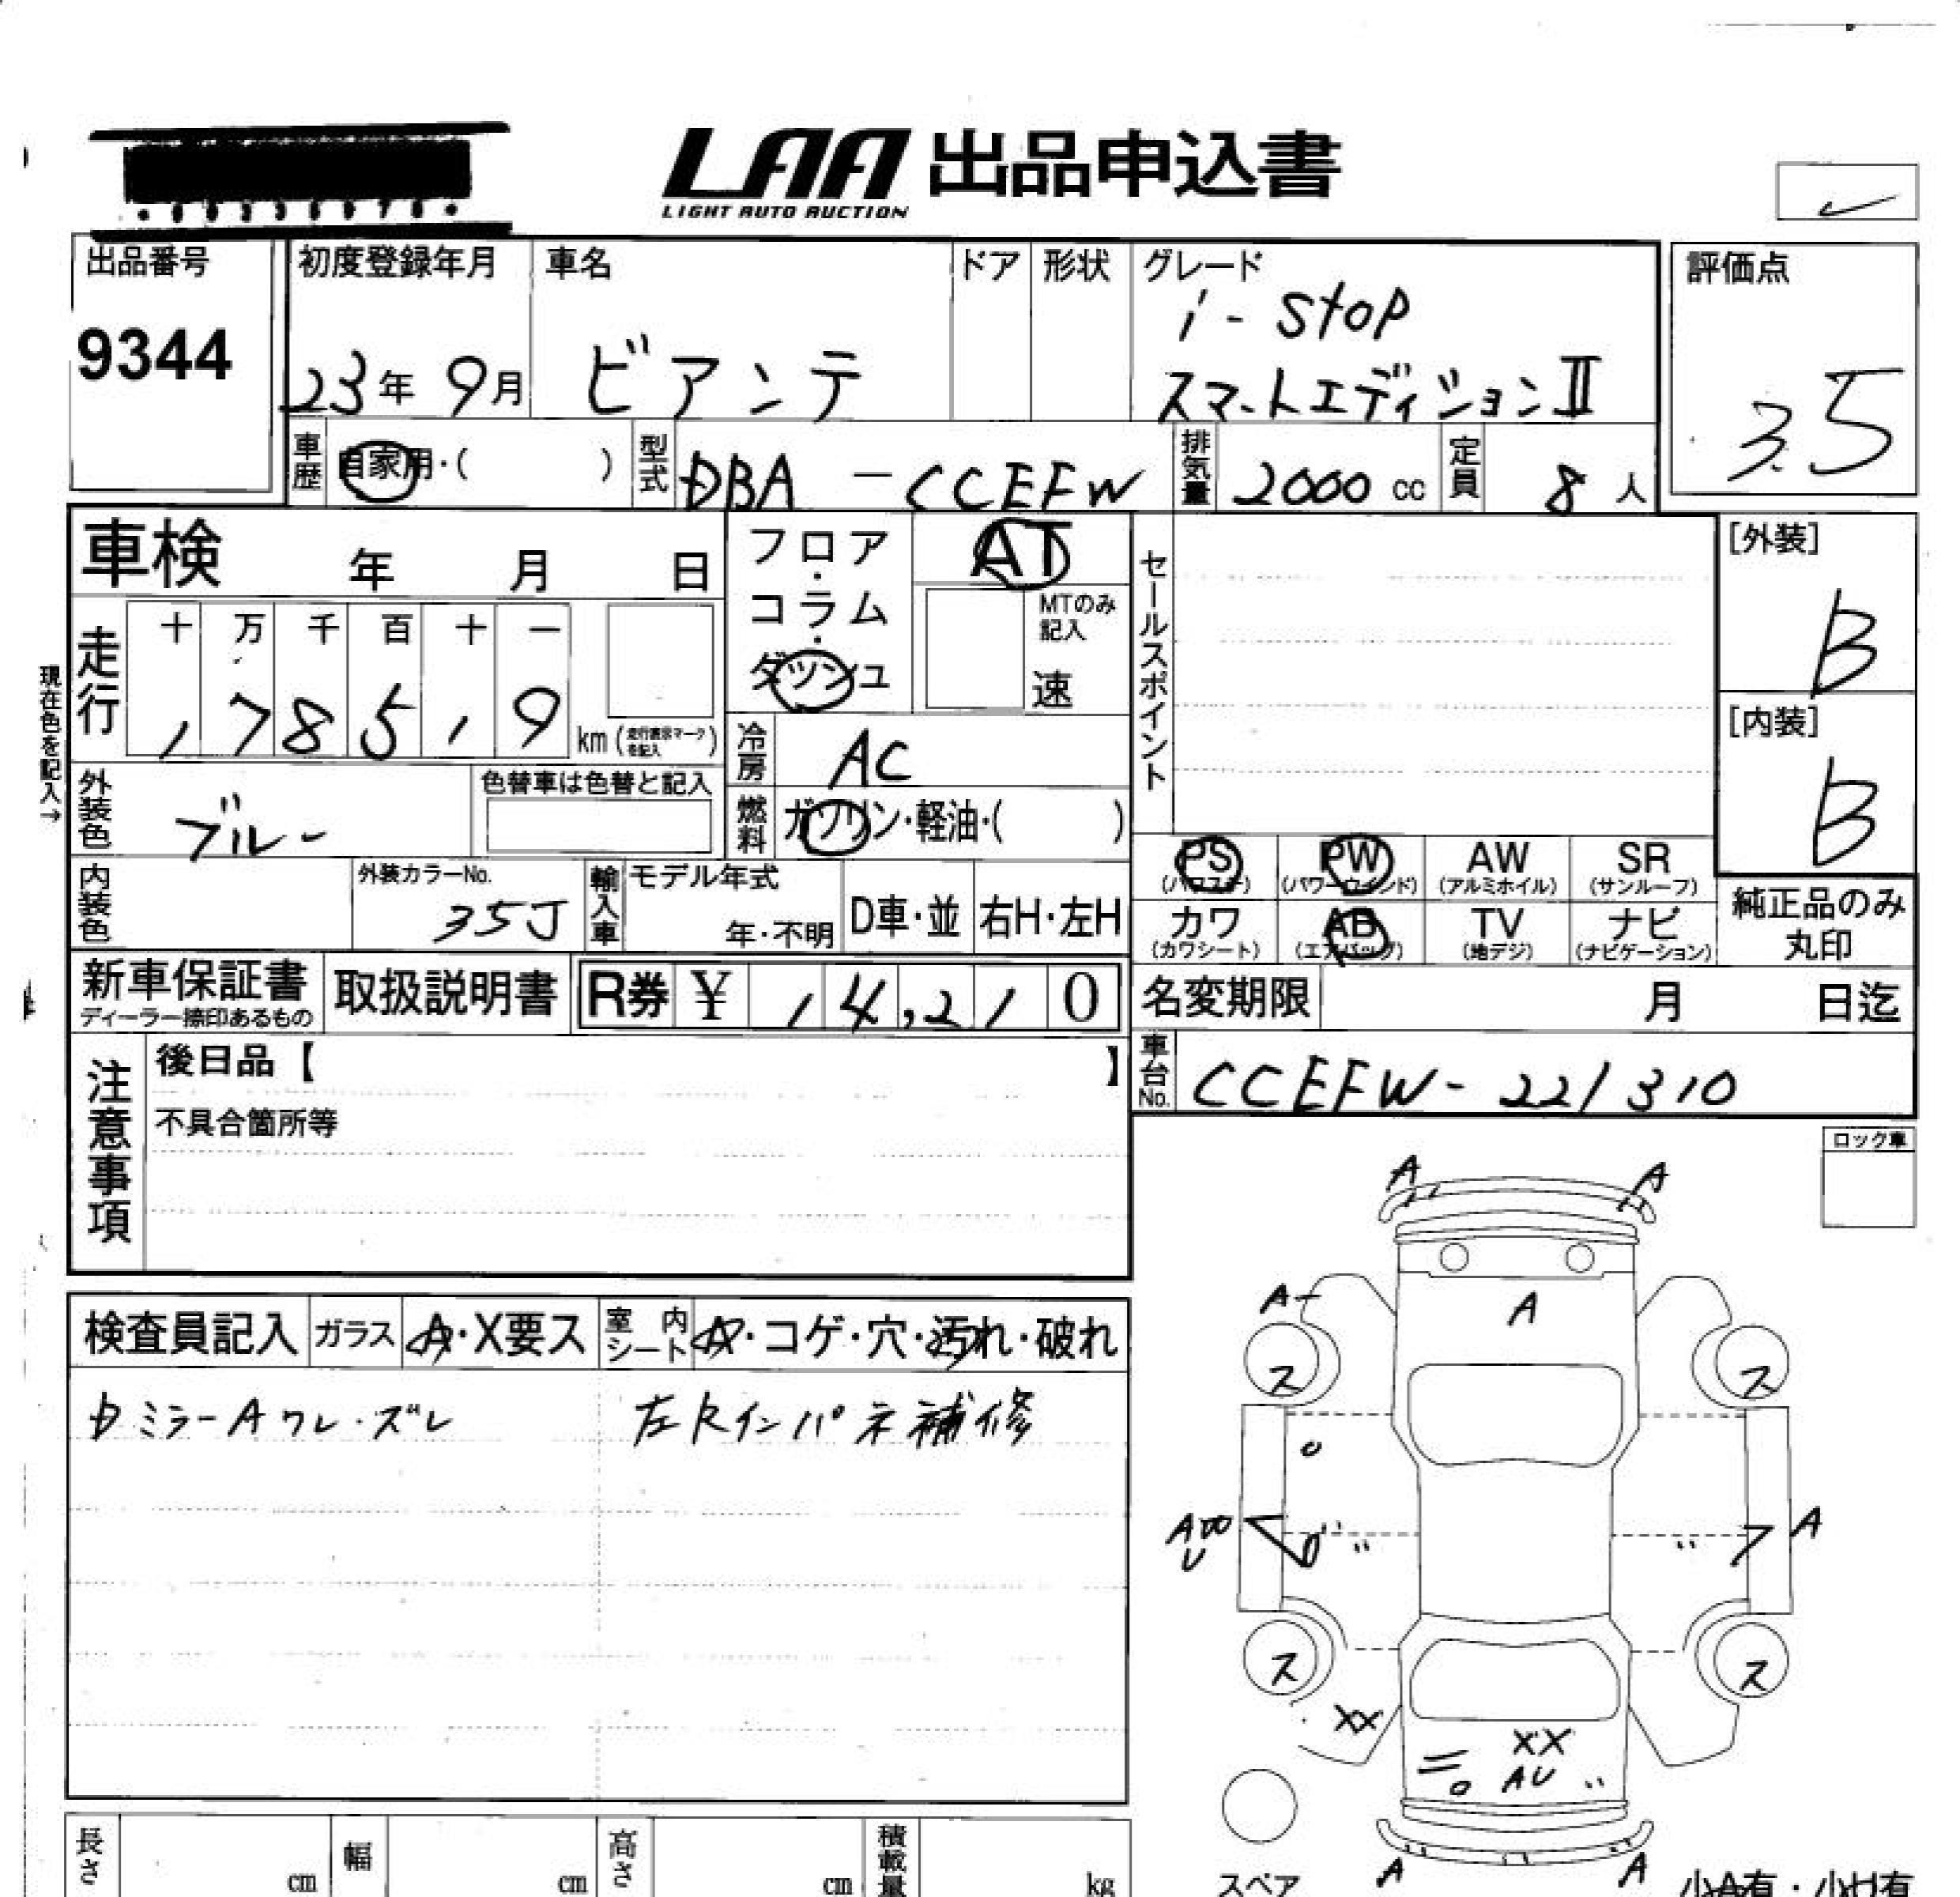 LAA 出品申込書
LIGHT AUTO AUCTION
出品番号
9344
初度登録年月
23年 9月
車名
ビアンテ
ドア
形状
グレード
i-stop
スマートエディションⅡ
評価点
3.5
車歴
自家用・( )
型式
DBA -CCEFW
排気量
2000 cc
定員
8 人
車検 年 月 日
フロア・コラム・ダッシュ
AT
MTのみ記入
速
セールスポイント
[外装]
B
[内装]
B
現在色を記入→
走行
十 万 千 百 十 一
1 7 8 5 1 9 km
冷房
AC
外装色
ブルー
色替車は色替と記入
燃料
ガソリン・軽油・( )
PS
(パワステ)
PW
(パワーウインド)
AW
(アルミホイル)
SR
(サンルーフ)
内装色
外装カラーNo.
35J
輸入車
モデル年式
年・不明
D車・並
右H・左H
カワ
(カワシート)
AB
(エアバッグ)
TV
(地デジ)
ナビ
(ナビゲーション)
純正品のみ
丸印
新車保証書
ディーラー捺印あるもの
取扱説明書
R券 ¥ 14,210
名変期限 月 日迄
注意事項
後日品【 】
不具合箇所等
車台No.
CCEFW-221310
ロック車
検査員記入
ガラス
A・X要ス
室内シート
A・コゲ・穴・汚れ・破れ
DミラーAワレ・ズレ
左Rインパネ補修
A A
A
A
ス ス
A
U
A
ス ス
XX
XX
AU
A A
長さ cm
幅 cm
高さ cm
積載量 kg
スペア
小A有・小U有